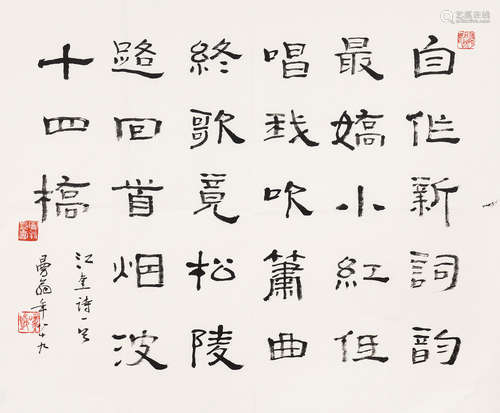 自作新詞韵
最嬌小紅低
唱我吹簫曲
終歌竟松陵
路回首烟波
十四橋
诗一首
曼翁年八十九
艺狐在线